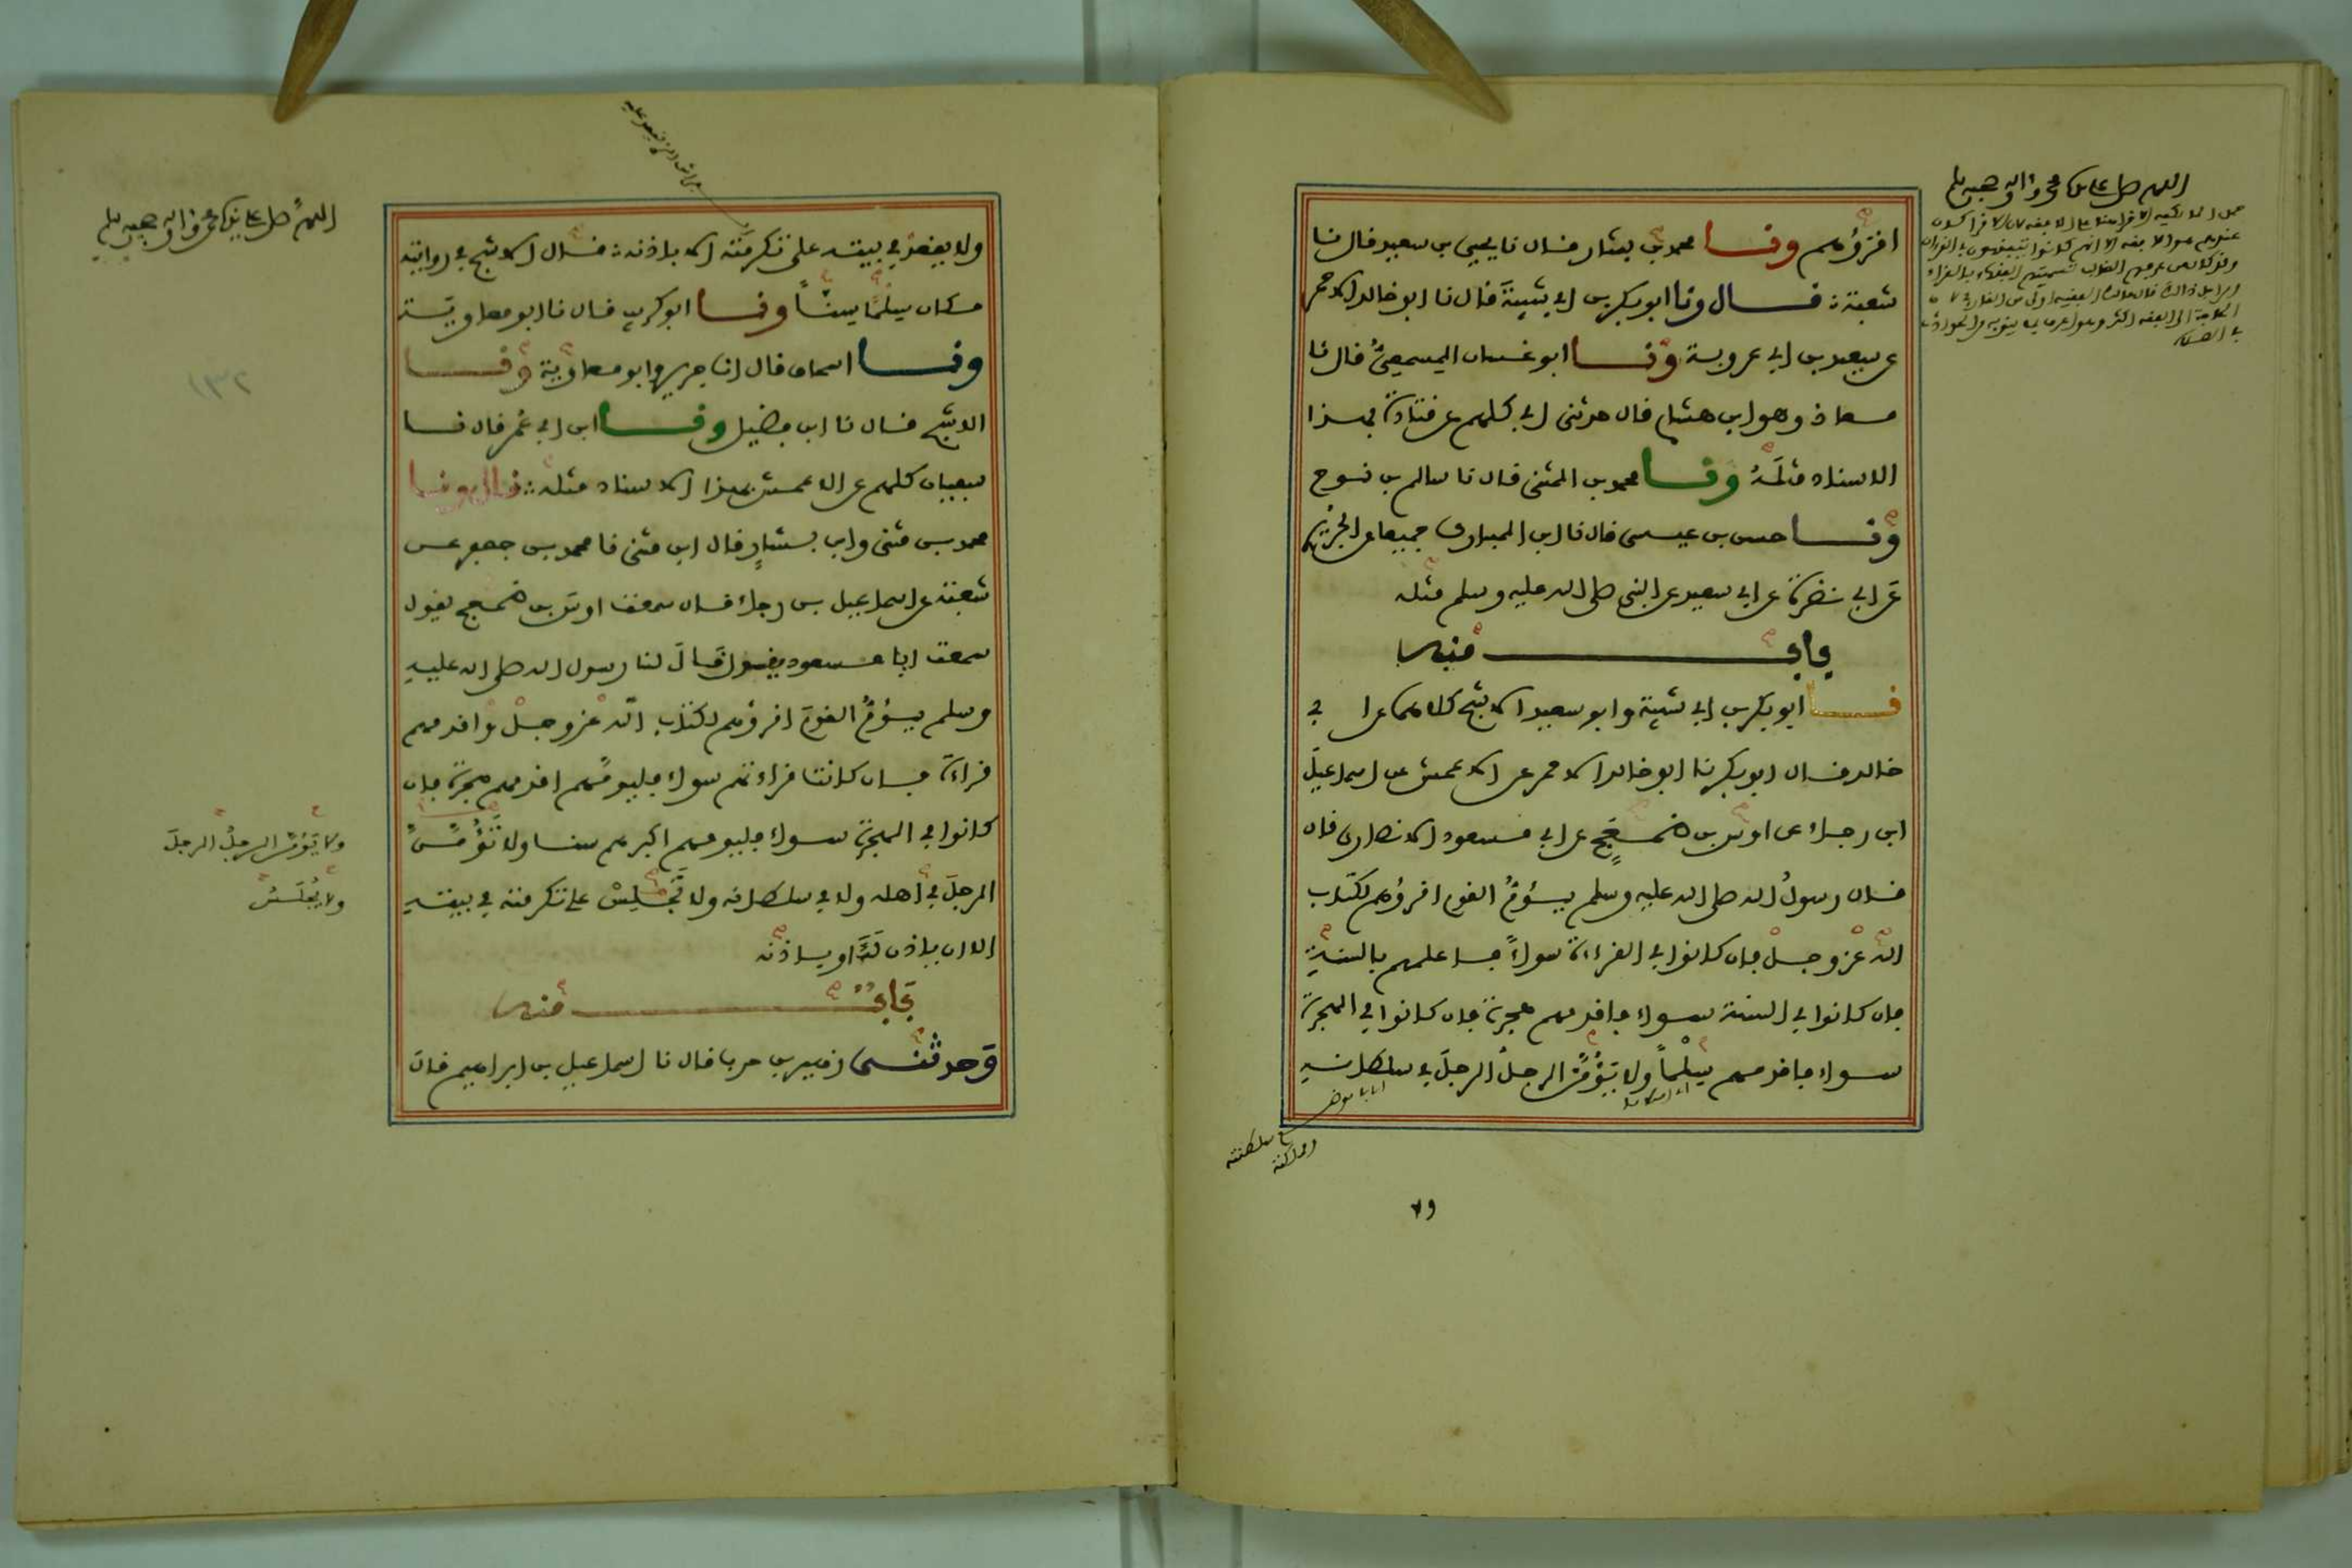 اللهم صل على سيدنا محمد وآله وصحبه وسلم
اقرؤهم ونا محمد بن بشار قال نا يحيى بن سعيد قال نا
شعبة قال ونا ابو بكر بن ابي شيبة قال نا ابو خالد الاحمر
عن سعيد بن ابي عروبة ونا ابو غسان المسمعي قال نا
معاذ وهو ابن هشام قال حدثني ابي كلهم عن قتادة بهذا
الاسناد مثله ونا محمد بن المثنى قال نا سالم بن نوح
ونا حسن بن عيسى قال نا ابن المبارك جميعا عن الجريري
عن ابي نضرة عن ابي سعيد عن النبي صلى الله عليه وسلم مثله
باب منه
نا ابو بكر بن ابي شيبة وابو سعيد الاشج كلاهما عن ابي
خالد قال ابو بكر نا ابو خالد الاحمر عن الاعمش عن اسماعيل
ابن رجاء عن اوس بن ضمعج عن ابي مسعود الانصاري قال
قال رسول الله صلى الله عليه وسلم يؤم القوم اقرؤهم لكتاب
الله عز وجل فان كانوا في القراءة سواء فاعلمهم بالسنة
فان كانوا في السنة سواء فاقدمهم هجرة فان كانوا في الهجرة
سواء فاقدمهم سلما ولا يؤمن الرجل الرجل في سلطانه
ولا
اللهم صل على سيدنا محمد وآله وصحبه وسلم
ولا يقعد في بيته على تكرمته الا باذنه قال الاشج في روايته
مكان سلما سنا ونا ابو كريب قال نا ابو معاوية
ونا اسحاق قال انا جرير وابو معاوية ونا
الاشج قال نا ابن فضيل ونا ابن ابي عمر قال نا
سفيان كلهم عن الاعمش بهذا الاسناد مثله قال ونا
محمد بن مثنى وابن بشار قال ابن مثنى نا محمد بن جعفر عن
شعبة عن اسماعيل بن رجاء قال سمعت اوس بن ضمعج يقول
سمعت ابا مسعود يقول قال لنا رسول الله صلى الله عليه
وسلم يؤم القوم اقرؤهم لكتاب الله عز وجل واقدمهم
قراءة فان كانت قراءتهم سواء فليؤمهم اقدمهم هجرة فان
كانوا في الهجرة سواء فليؤمهم اكبرهم سنا ولا تؤمن
الرجل في اهله ولا في سلطانه ولا تجلس على تكرمته في بيته
الا ان ياذن لك او باذنه
باب منه
وحدثني زهير بن حرب قال نا اسماعيل بن ابراهيم قال
ولا يؤمن الرجل الرجل
ولا يجلس
١٣٢